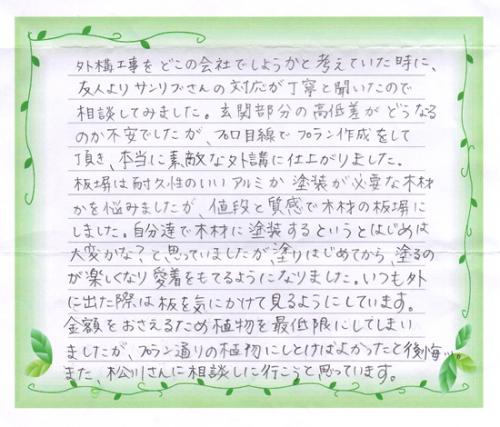 外構工事をどこの会社でしようかと考えていた時に、
友人よりサンリブさんの対応が丁寧と聞いたので
相談してみました。玄関部分の高低差がどうなる
のか不安でしたが、プロ目線でプラン作成をして
頂き、本当に素敵な外講に仕上がりました。
板塀は耐久性のいいアルミか 塗装が必要な木材
かを悩みましたが、値段と質感で木材の板塀に
しました。自分達で木材に塗装するというとはじめは
大変かな?と思っていましたが、塗りはじめてから、塗るの
が楽しくなり愛着をもてるようになりました。いつも外
に出た際は板を気にかけて見るようにしています。
金額をおさえるため植物を最低限にしてしまい
ましたが、プラン通りの植物にしとけばよかったと後悔...。
また、松川さんに相談しに行こうと思っています。